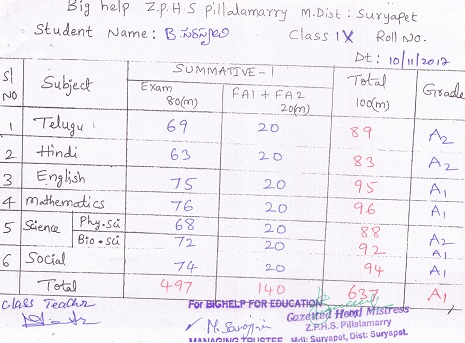 Big help Z.P.H.S pillalamarry M.Dist: Suryapet
Student Name: B సరస్వతి Class IX Roll No.
Dt: 10/11/2017
Sl No Subject SUMMATIVE-1 Total 100(m) Grade
Exam 80(m) FA1 + FA2 20(m)
1 Telugu 69 20 89 A2
2 Hindi 63 20 83 A2
3 English 75 20 95 A1
4 mathematics 76 20 96 A1
5 Science Phy.sci 68 20 88 A2
Bio.sci 72 20 92 A1
6 Social 74 20 94 A1
Total 497 140 637 A1
Class Teacher For BIGHELP FOR EDUCATION
Gazetted Head Mistress
Z.P.H.S. Pillalamarry
MANAGING TRUSTEE Mdl: Suryapet, Dist: Suryapet.